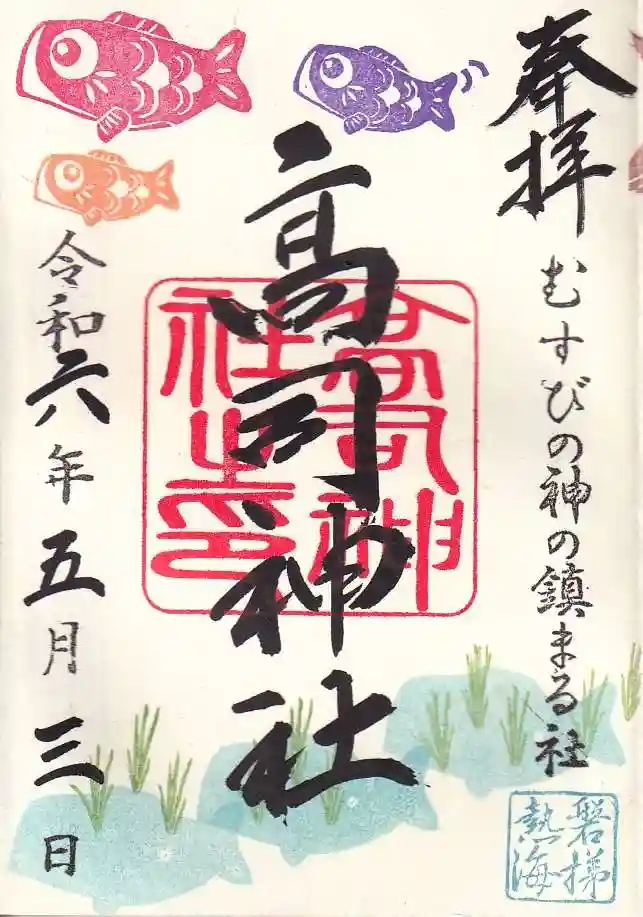 奉拝
むすびの神の鎮まる社
高司神社
高司神社之印
令和六年五月三日
磐梯熱海